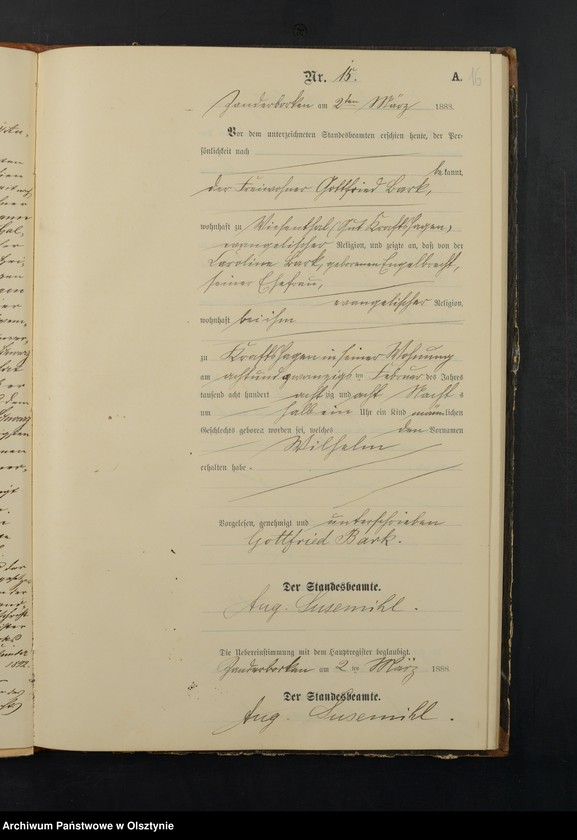 Nr. 15.
A. 16
Zanderborken am 2ten März 1888.
Vor dem unterzeichneten Standesbeamten erschien heute, der Per-
sönlichkeit nach
bekannt,
der Freiwohner Gottfried Bark,
wohnhaft zu Wiesenthal (Gut Kraftshagen)
evangelischer Religion, und zeigte an, daß von der
Caroline Bark, geborenen Engelbrecht,
seiner Ehefrau,
evangelischer Religion,
wohnhaft bei ihm
zu Kraftshagen in seiner Wohnung
am achtundzwanzigsten Februar des Jahres
tausend acht hundert achtzig und acht Nachts
um halb ein Uhr ein Kind männlichen
Geschlechts geboren worden sei, welches den Vornamen
Wilhelm
erhalten habe.
Vorgelesen, genehmigt und unterschrieben
Gottfried Bark.
Der Standesbeamte.
Aug. Susemihl.
Die Uebereinstimmung mit dem Hauptregister beglaubigt.
Zanderborken am 2ten März 1888.
Der Standesbeamte.
Aug. Susemihl.
Archiwum Państwowe w Olsztynie